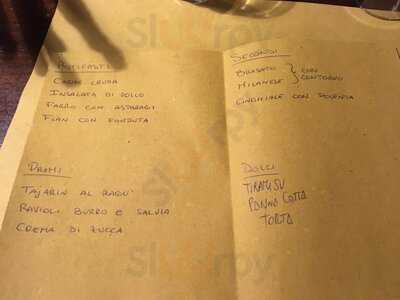 ANTIPASTI
CARNE CRUDA
INSALATA DI POLLO
FARRO CON ASPARAGI
FLAN CON FONDUTA
SECONDI
BRASATO } CON
MILANESE } CONTORNO
CINGHIALE CON POLENTA
PRIMI
TAJARIN AL RAGU'
RAVIOLI BURRO E SALVIA
CREMA DI ZUCCA
DOLCI
TIRAMISU
PANNA COTTA
TORTA